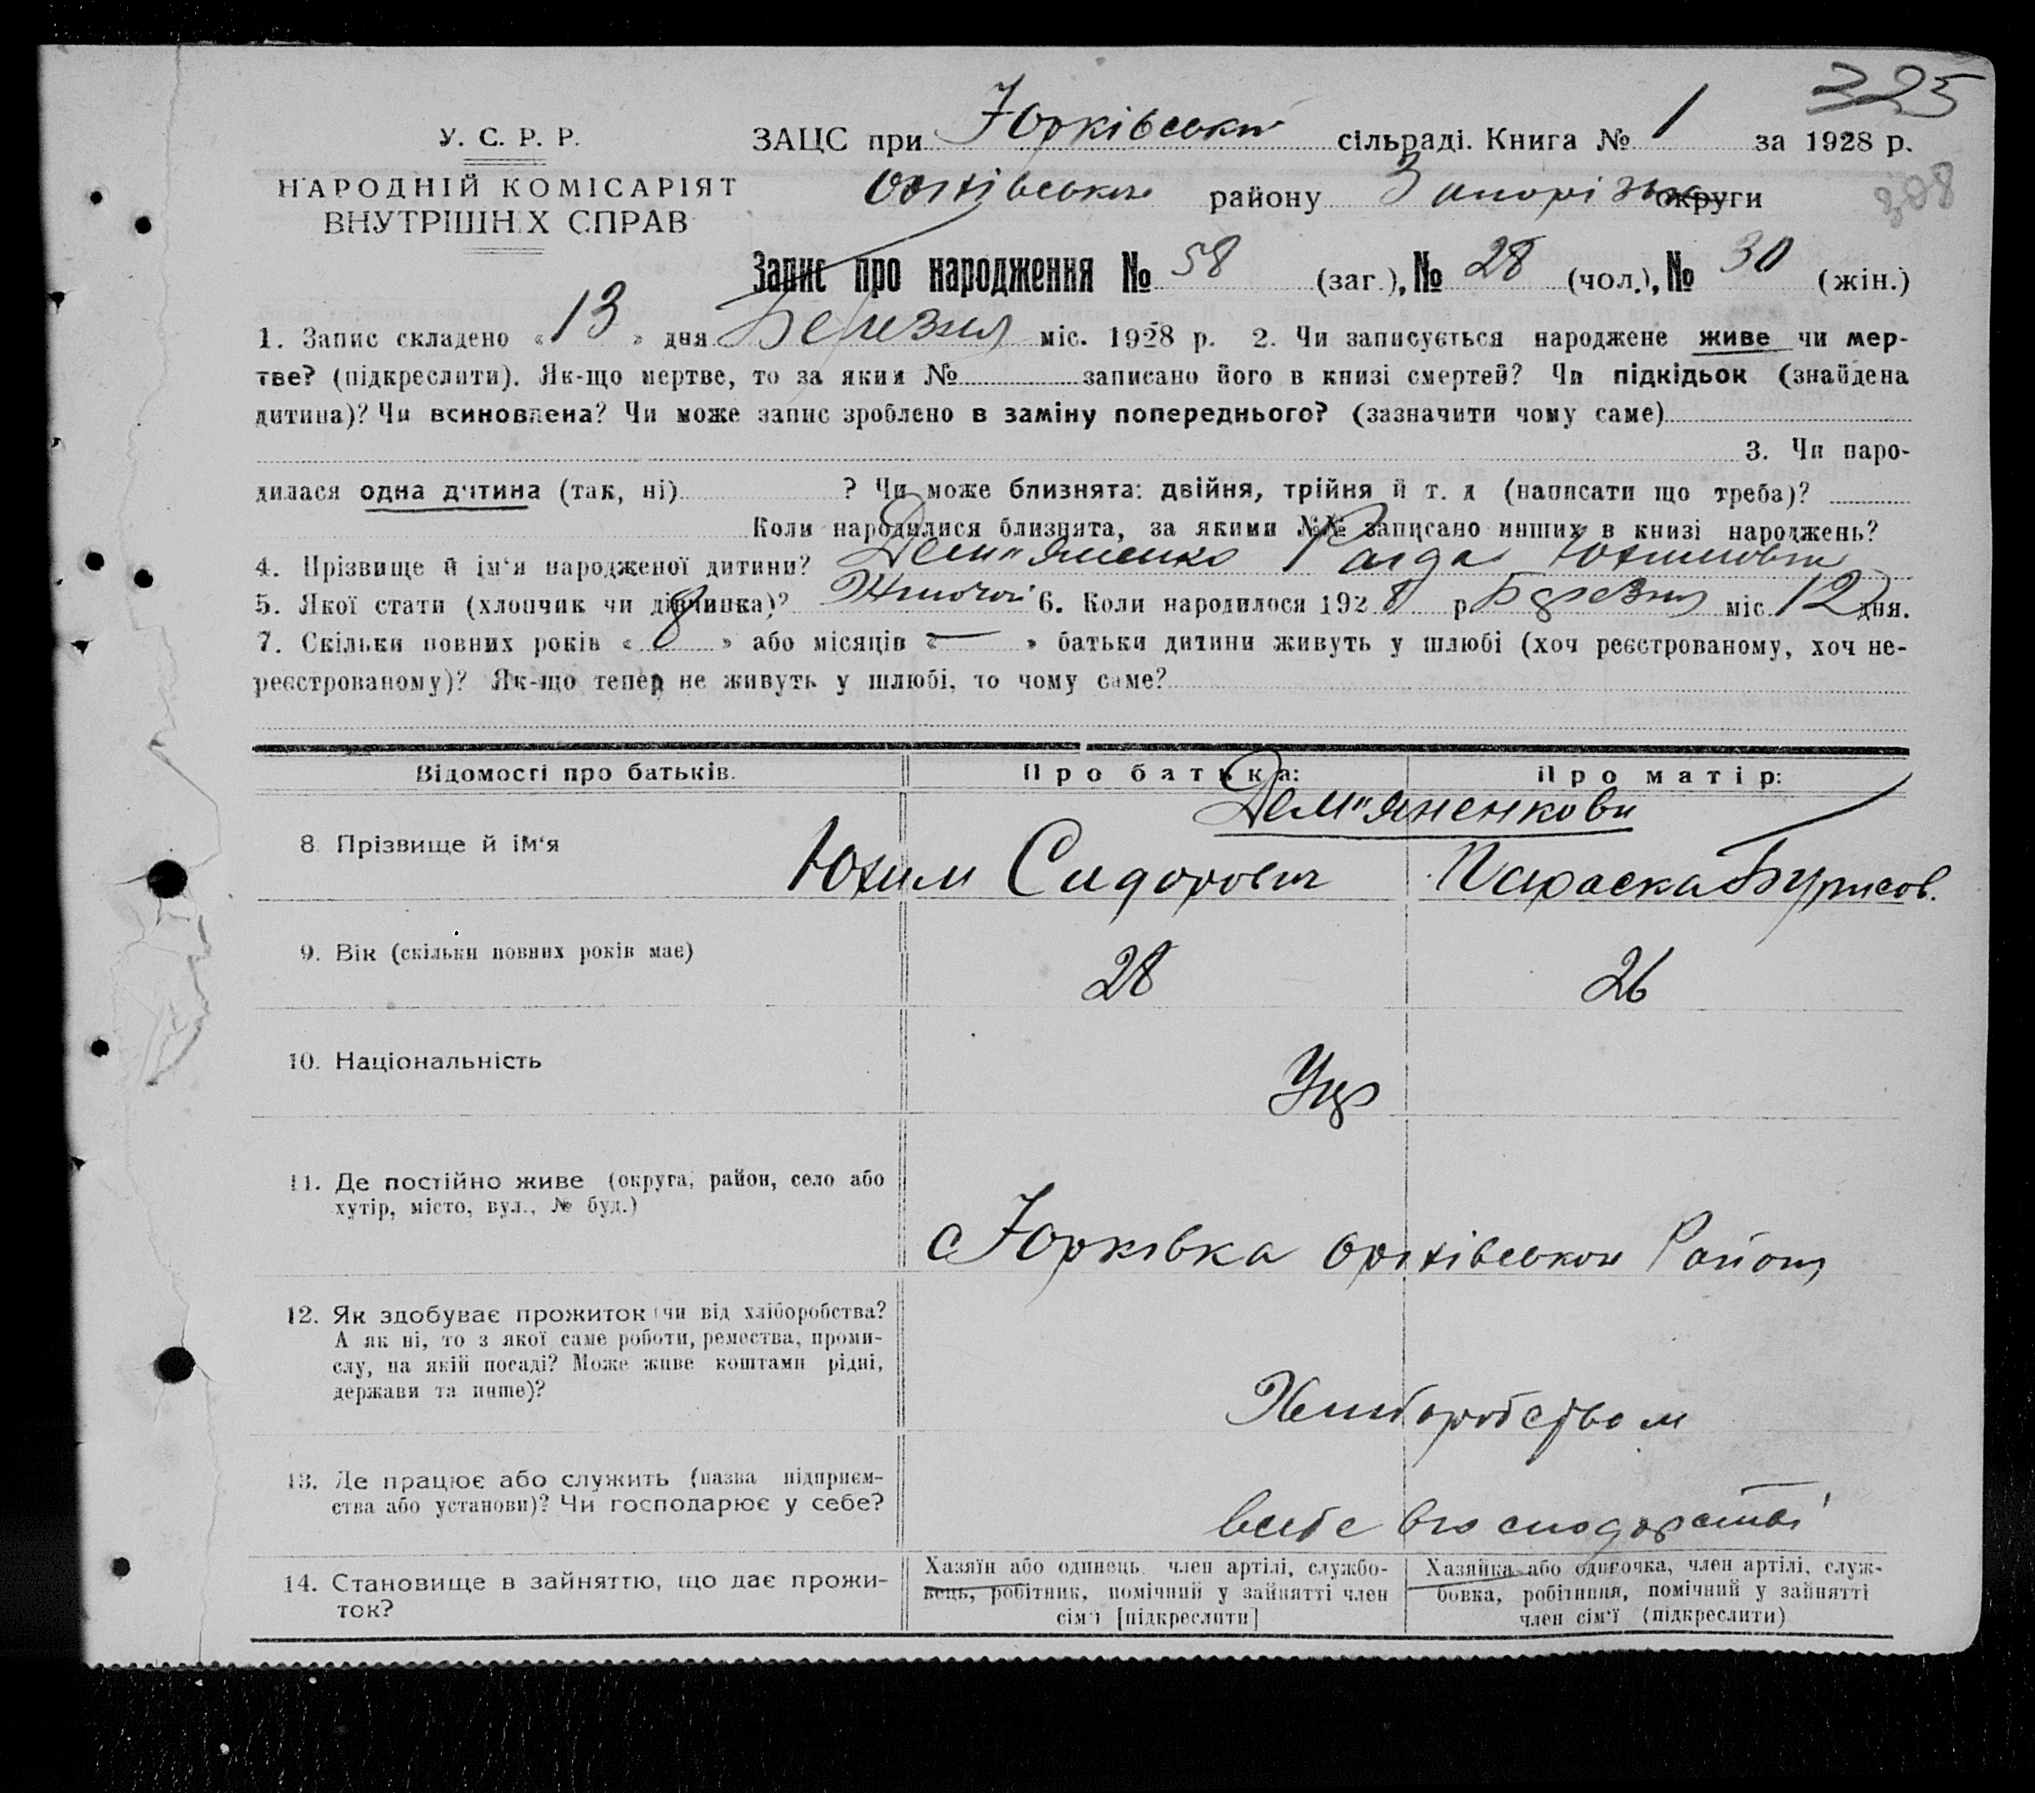 325
У. С. Р. Р.
ЗАЦС при Юрківський сільраді. Книга № 1 за 1928 р.
НАРОДНІЙ КОМІСАРІЯТ
Оріхівського району Запорізьк округи
308
ВНУТРІШН.Х СПРАВ
Запис про народження № 58 (заг.), № 28 (чол.), № 30 (жін.)
1. Запис складено «13» дня Березня міс. 1928 р. 2. Чи записується народжене живе чи мер-
тве? (підкреслити). Як-що мертве, то за яким № записано його в книзі смертей? Чи підкідьок (знайдена
дитина)? Чи всиновлена? Чи може запис зроблено в заміну попереднього? (зазначити чому саме)
3. Чи наро-
дилася одна дитина (так, ні) ? Чи може близнята: двійня, трійня й т. д (написати що треба)?
Коли народилися близнята, за якими №№ записано инших в книзі народжень?
4. Прізвище й ім‘я народженої дитини? Дем"яненко Раїда Юхимовна
5. Якої стати (хлопчик чи дівчинка)? Жіночої 6. Коли народилося 1928 р Березня міс 12 дня.
7. Скільки повних років «8» або місяців «—» батьки дитини живуть у шлюбі (хоч реєстрованому, хоч не-
реєстрованому)? Як-що тепер не живуть у шлюбі, то чому саме?
Відомості про батьків.
Про батька:
Про матір:
Дем"яненкови
8. Прізвище й ім‘я
Юхим Сидорович
Параска Бурисов.
9. Вік (скільки повних років має)
28
26
10. Національність
Укр
11. Де постійно живе (округа, район, село або
хутір, місто, вул., № буд.)
с Юрківка Оріхівського Району
12. Як здобуває прожиток (чи від хліборобства?
А як ні, то з якої саме роботи, ремества, проми-
слу, на якій посаді? Може живе коштами рідні,
держави та инше)?
Хлиборобством
13. Де працює або служить (назва підприєм-
ства або установи)? Чи господарює у себе?
всебе вгосподарстві
14. Становище в зайняттю, що дає прожи-
ток?
Хазяїн або одинець, член артілі, службо-
вець, робітник, помічний у зайнятті член
сім‘ї [підкреслити]
Хазяйка або одиночка, член артілі, служ-
бовка, робітниця, помічний у зайнятті
член сім‘ї (підкреслити)